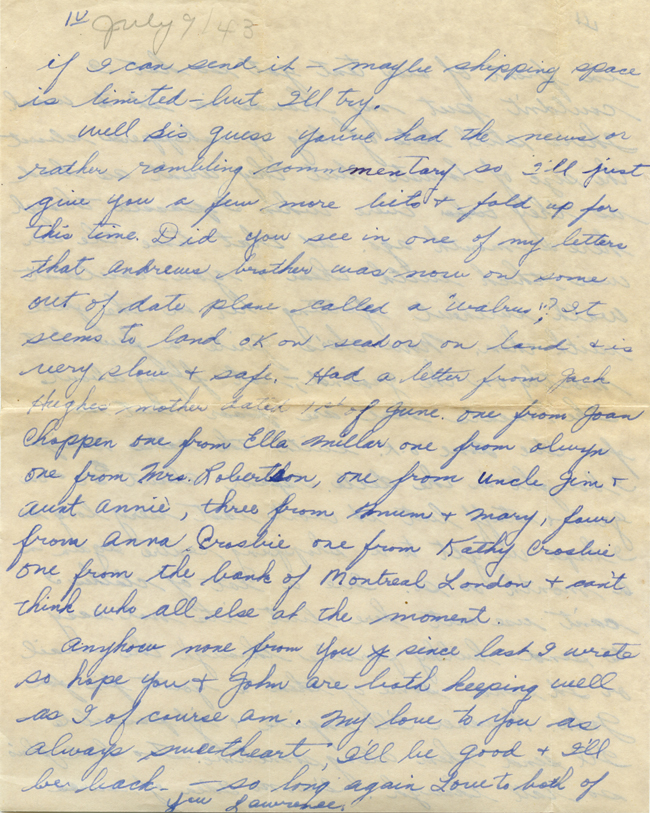 IV July 9/43
if I can send it - maybe shipping space
is limited - but I'll try.
Well Sis guess you've had the news or
rather rambling commmentary so I'll just
give you a few more bits & fold up for
this time. Did you see in one of my letters
that Andrews brother was now on some
out of date plane called a "Walrus"? It
seems to land OK on sea or on land & is
very slow & safe. - Had a letter from Jack
Hughes mother dated 1st of June. one from Joan
Choppen one from Ella Millar one from Olwyn
one from Mrs. Robertson, one from Uncle Jim &
Aunt Annie, three from Mum & Mary, four
from Anna Crosbie one from Kathy Crosbie
one from the bank of Montreal London & can't
think who all else at the moment.
Anyhow none from you since last I wrote
so hope you & John are both keeping well
as I of course am. My love to you as
always sweetheart, I'll be good & I'll
be back. - so long again Love to both of
you Lawrence.